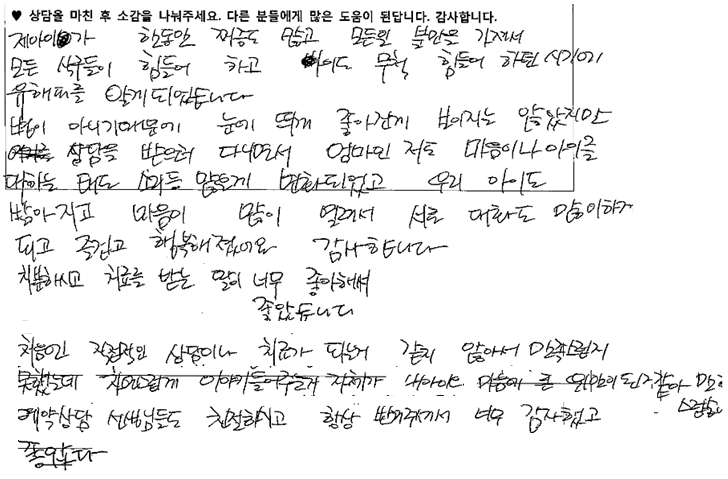 ♥ 상담을 마친 후 소감을 나눠주세요. 다른 분들에게 많은 도움이 된답니다. 감사합니다.
제아이가 한동안 짜증도 많고 모든일 불만을 가져서
모든 식구들이 힘들어 하고 아이도 무척 힘들어 하던 시기에
유해피를 알게되었습니다
병이 아니기때문에 눈에 띄게 좋아진게 보이지는 않았지만
상담을 받으러 다니면서 엄마인 저도 마음이나 아이를
대하는 태도 모두 많은게 변화되었고 우리 아이도
밝아지고 마음이 많이 열려서 서로 대화도 많이하게
되고 즐겁고 행복해졌어요 감사합니다
차분하시고 치료를 받는 딸이 너무 좋아해서
좋았습니다
처음엔 직접적인 상담이나 치료가 되는거 같지 않아서 만족스럽지
못했는데 자연스럽게 이야기들어주는거 자체가 내아이의 마음에 큰 위안이 되는거같아 만족
스럽습니다
예약상담 선생님들도 친절하시고 항상 반겨주셔서 너무 감사했고
좋았다